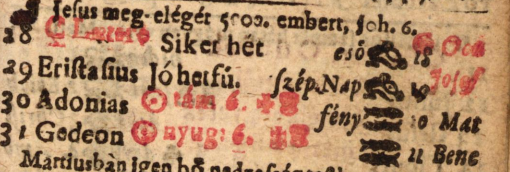 Jesus meg-elégét 5000. embert, Joh. 6.
28 C Lætare Siket hét eső 18 G Ocu
29 Eristasius Jó hetfű. szép. Nap 19 Josef
30 Adonias ☉ tám 6. fény 20 Mat
31 Gedeon ☉ nyug: 6. 21 Bene
Martiusban igen bő